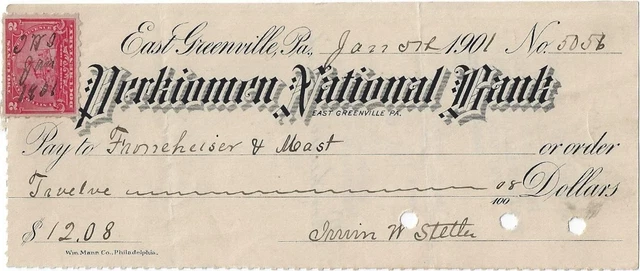 East Greenville, Pa., Jan 5th 1901 No. 5056
Perkiomen National Bank
EAST GREENVILLE PA.
Pay to Froneheiser & Mast or order
Twelve 08/100 Dollars
$12.08
Irvin W Stetler
Wm. Mann Co., Philadelphia.
2 2
1901